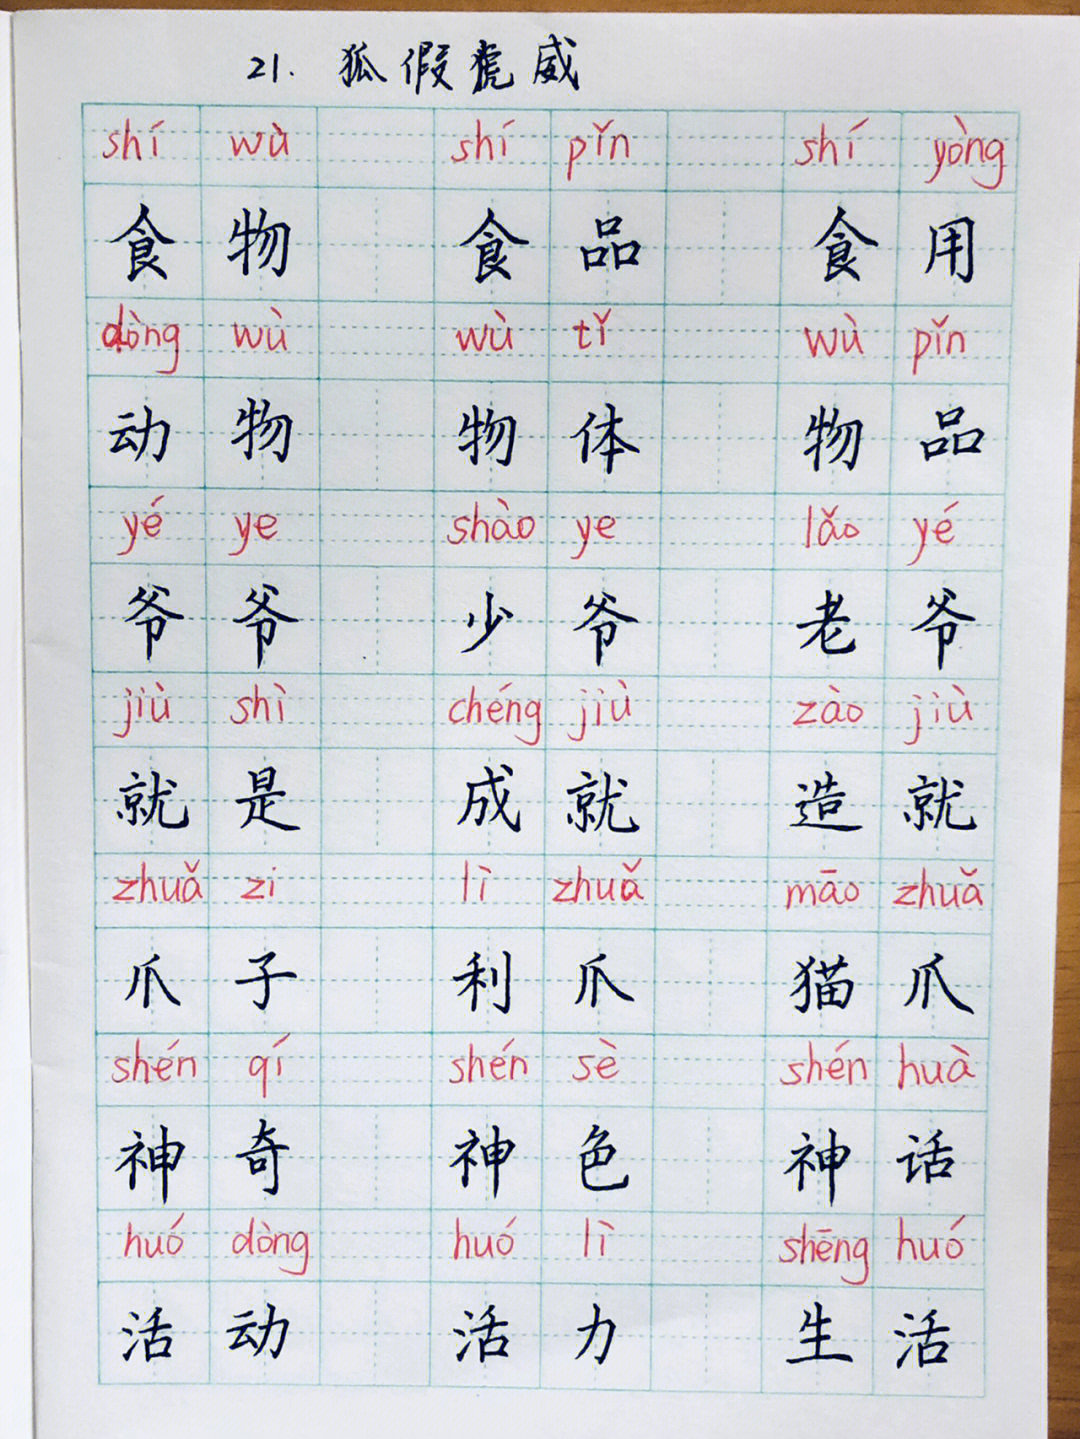 21. 狐假虎威
shí wù shí pǐn shí yòng
食物 食品 食用
dòng wù wù tǐ wù pǐn
动物 物体 物品
yé ye shào ye lǎo yé
爷爷 少爷 老爷
jiù shì chéng jiù zào jiù
就是 成就 造就
zhuǎ zi lì zhuǎ māo zhuǎ
爪子 利爪 猫爪
shén qí shén sè shén huà
神奇 神色 神话
huó dòng huó lì shēng huó
活动 活力 生活